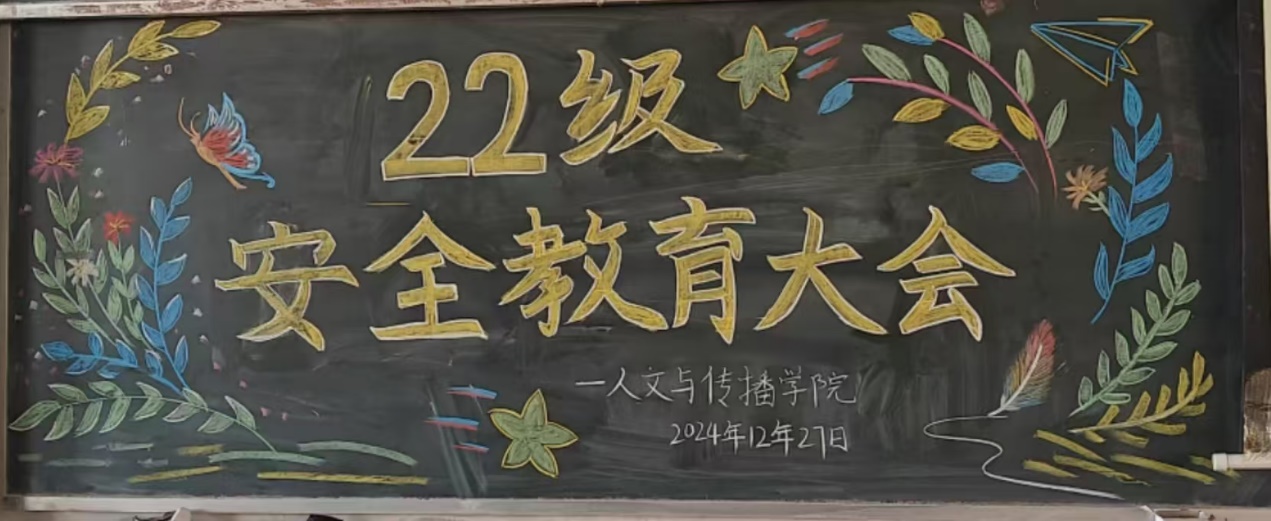 22级
安全教育大会
一人文与传播学院
2024年12年27日